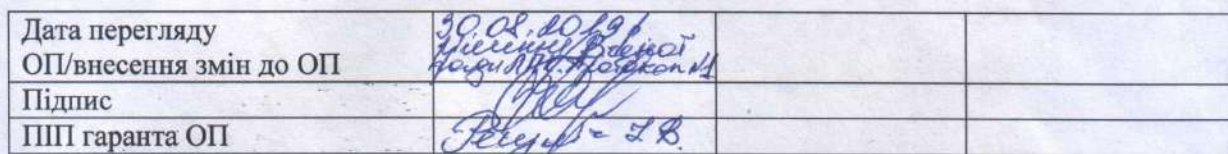 Дата перегляду
ОП/внесення змін до ОП
30.08.2019
Вченої
ради протокол №1
Підпис
ПІП гаранта ОП